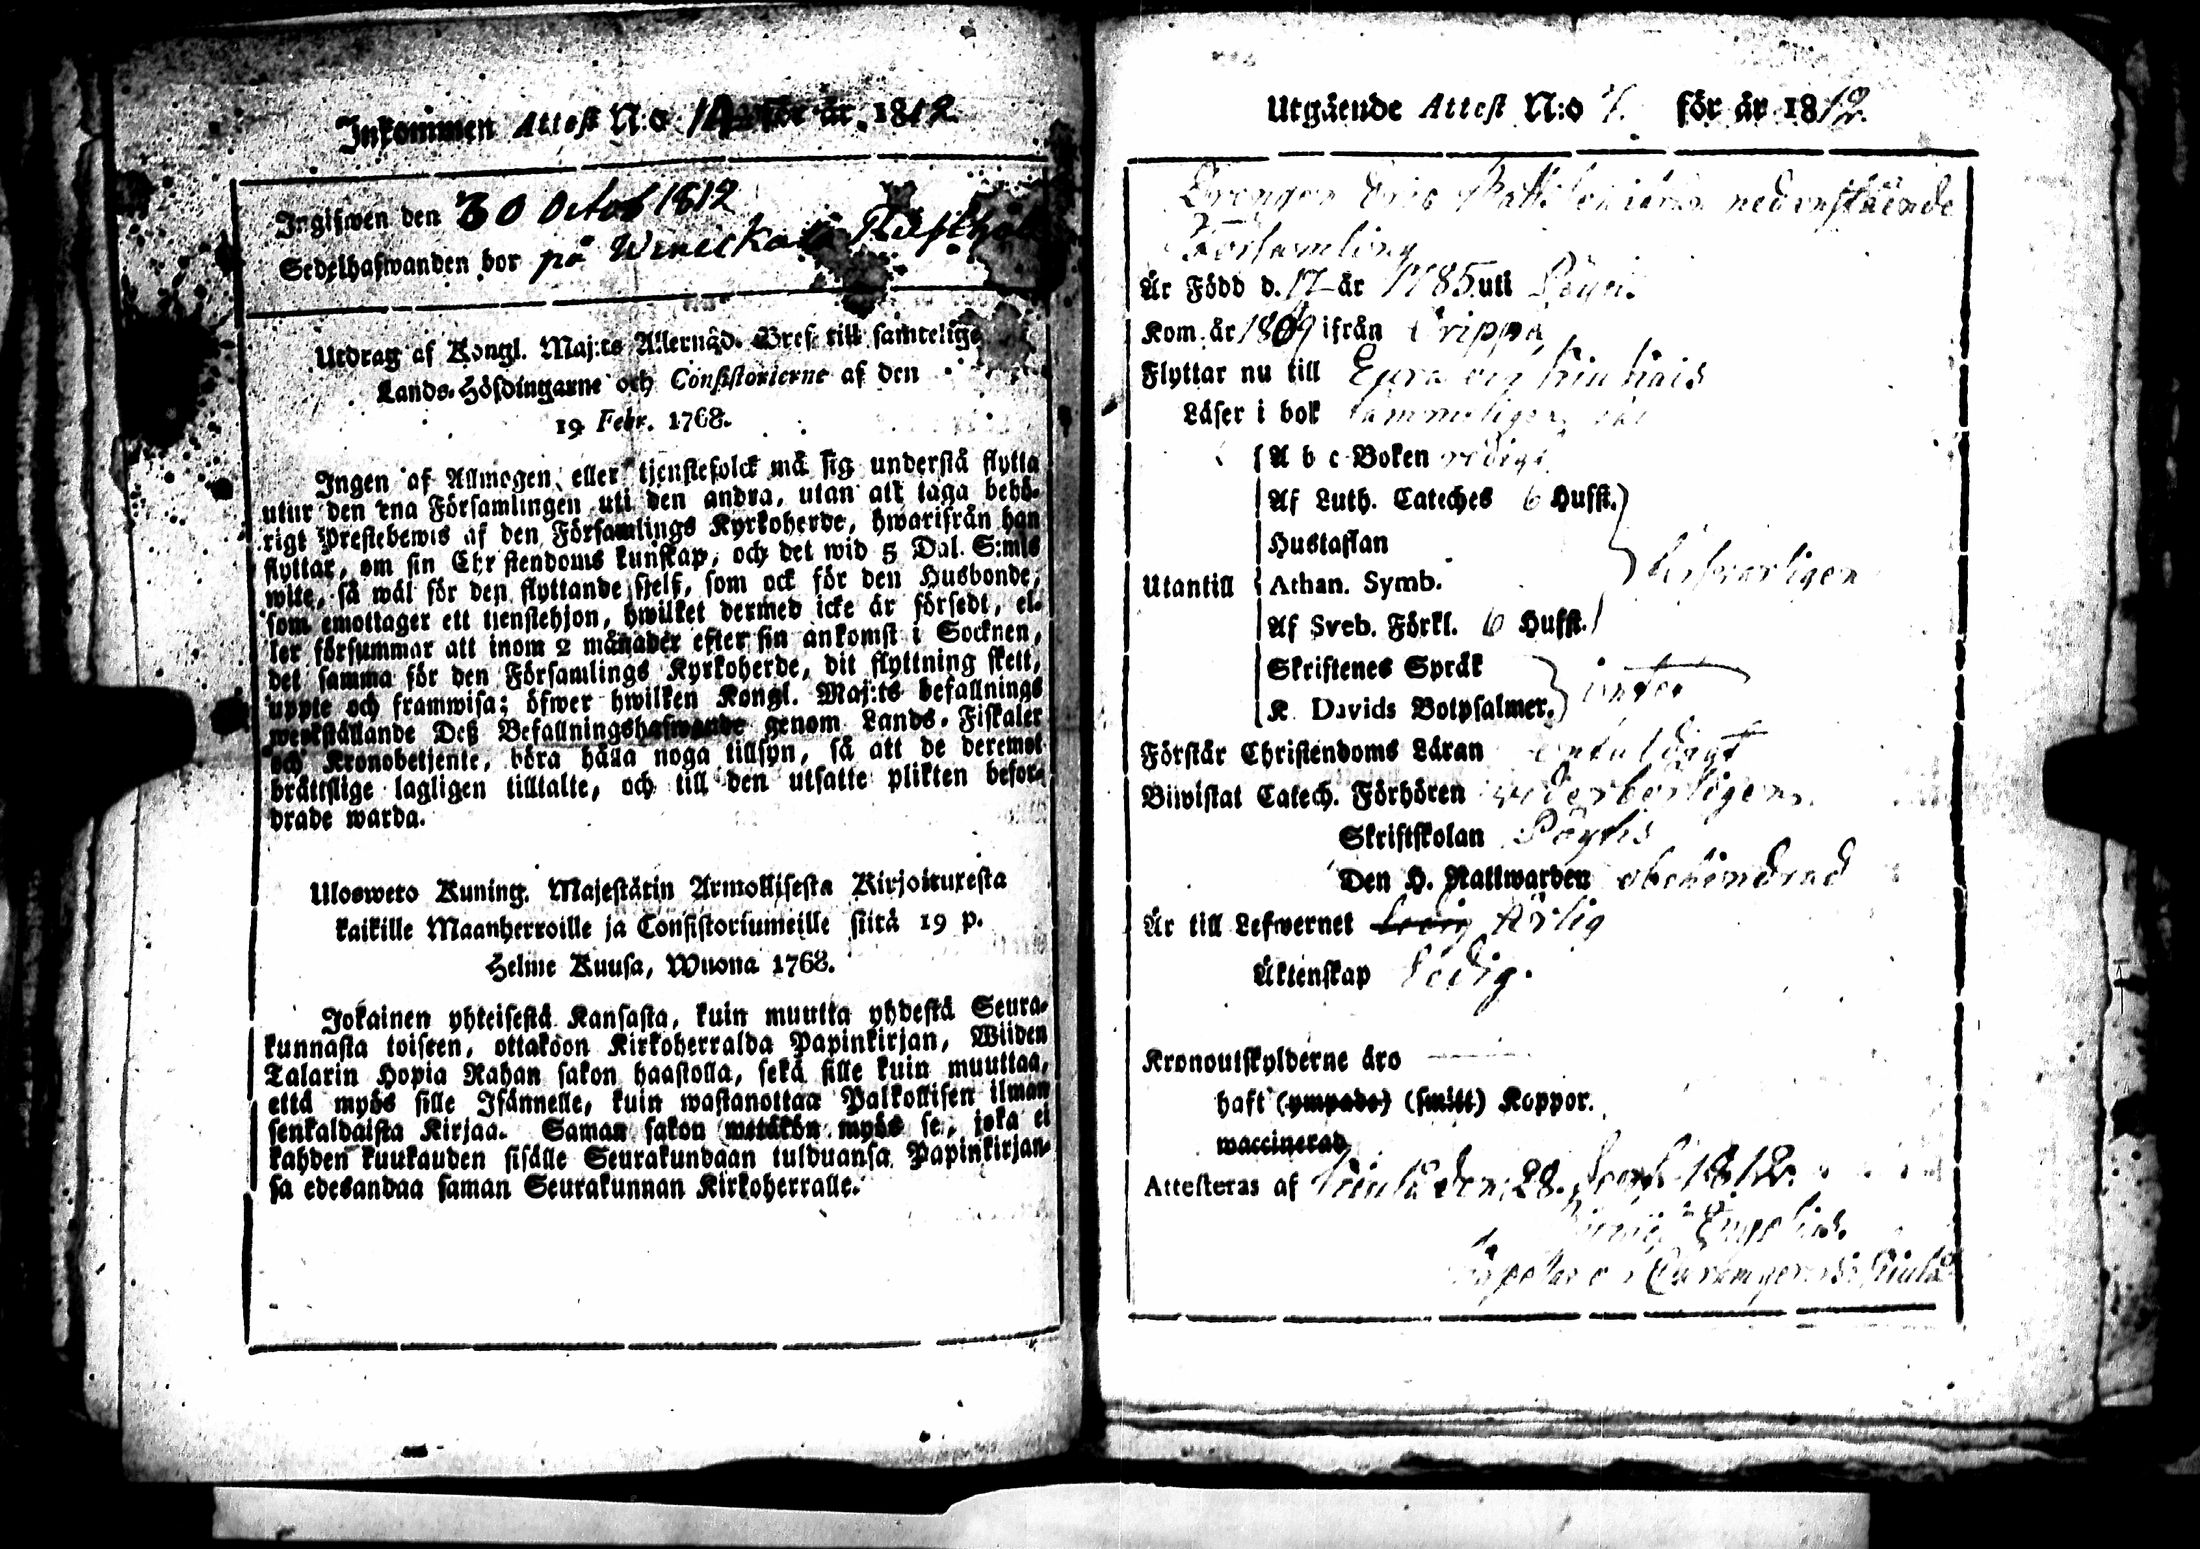 Inkommen Attest N:o 14 för år 1812.
Ingifwen den 30 Octob 1812
Sedelhafwanden bor på
Utdrag af Kongl. Maj:ts Allernåd. Bref till samtelige
Lands-Höfdingarne och Consistorierne af den
19 Febr. 1768.
Ingen af Allmogen eller tjenstefolck må sig understå flytta
utur den ena Församlingen uti den andra, utan att taga behö-
rigt Prestebewis af den Församlings Kyrkoherde, hwarifrån han
flyttar, om sin Christendoms kunskap, och det wid 5 Dal. S:mts
wite, så wäl för den flyttande sjelf, som ock för den Husbonde,
som emottager ett tjenstehjon, hwilket dermed icke är försedt, el-
ler försummar att inom 2 månader efter sin ankomst i Socknen,
det samma för den Församlings Kyrkoherde, dit flyttning skett,
uppte och framwisa; öfwer hwilken Kongl. Maj:ts befallnings
werkställande Deß Befallningshafwande genom Lands-Fiskaler
och Kronobetjente, böra hålla noga tillsyn, så att de deremot
brättslige lagligen tilltalte, och till den utsatte plikten befor-
drade warda.
Ulosweto Kuning. Majestätin Armollisesta Kirjoituxesta
kaikille Maanherroille ja Consistoriumeille siitä 19 p.
Helme Kuusa, Wuona 1768.
Jokainen yhteisestä Kansasta, kuin muutta yhdestä Seura-
kunnasta toiseen, ottakoon Kirkoherralda Papinkirjan, Wiiden
Talarin Hopia Rahan sakon haastolla, sekä sille kuin muuttaa,
että myös sille Isännelle, kuin wastanottaa Palkollisen ilman
senkaldaista Kirjaa. Saman sakon wetäkön myös se, joka ei
kahden kuukauden sisälle Seurakundaan tulduansa Papinkirjan-
sa edesandaa saman Seurakunnan Kirkoherralle.
Utgående Attest N:o 7. för år 1812.
Drengen Eric nedanstäende
Församling
Är Född d. 17 år 1785 uti
Kom. år 1809 ifrån
Flyttar nu till Eura och
Läser i bok
A b c-Boken
Af Luth. Cateches 6 Hufst.
Hustaflan
Utantill Athan. Symb.
Af Sveb. Förkl. 6 Hufst.
Skriftenes Språk
K. Davids Botpsalmer. intet
Förstår Christendoms Läran enfaldigt
Biwistat Catech. Förhören wederbörligen
Skriftskolan Pöytis
Den H. Nattwarden obehindrad
Är till Lefwernet Ledig Ärlig
Äktenskap Ledig.
Kronoutskylderne äro
haft (ympade) (smitt) Koppor.
waccinerad
Attesteras af den 28. 1812.